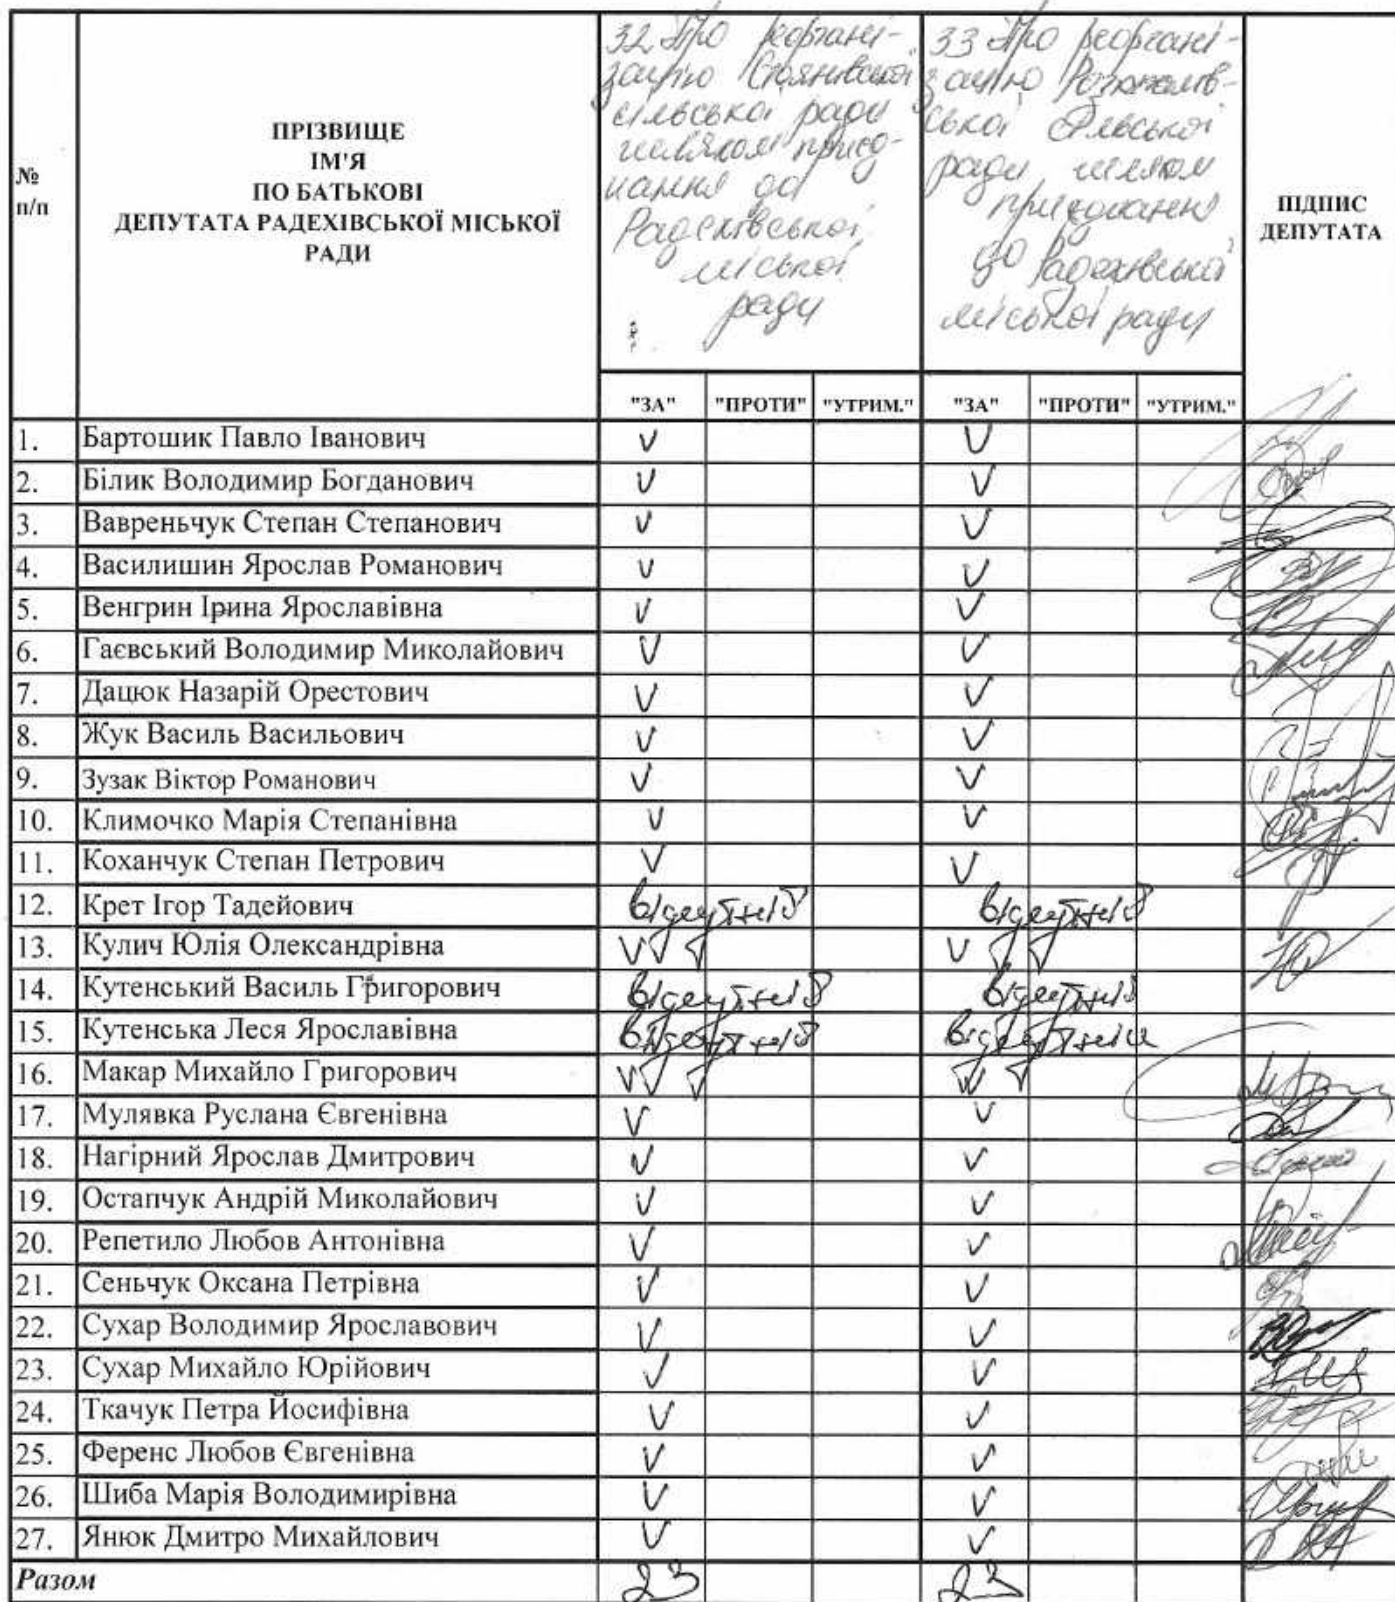 №
п/п
ПРІЗВИЩЕ
ІМ'Я
ПО БАТЬКОВІ
ДЕПУТАТА РАДЕХІВСЬКОЇ МІСЬКОЇ
РАДИ
32 Про реоргані-
зацію Стоянівської
сільської ради
шляхом приєд-
нання до
Радехівської
міської
ради
33 Про реоргані-
зацію
ської сільської
ради шляхом
приєднання
до Радехівської
міської ради
ПІДПИС
ДЕПУТАТА
"ЗА" "ПРОТИ" "УТРИМ." "ЗА" "ПРОТИ" "УТРИМ."
1. Бартошик Павло Іванович
2. Білик Володимир Богданович
3. Вавреньчук Степан Степанович
4. Василишин Ярослав Романович
5. Венгрин Ірина Ярославівна
6. Гаєвський Володимир Миколайович
7. Дацюк Назарій Орестович
8. Жук Василь Васильович
9. Зузак Віктор Романович
10. Климочко Марія Степанівна
11. Коханчук Степан Петрович
12. Крет Ігор Тадейович відсутній відсутній
13. Кулич Юлія Олександрівна
14. Кутенський Василь Григорович відсутній відсутній
15. Кутенська Леся Ярославівна відсутній
16. Макар Михайло Григорович
17. Мулявка Руслана Євгенівна
18. Нагірний Ярослав Дмитрович
19. Остапчук Андрій Миколайович
20. Репетило Любов Антонівна
21. Сеньчук Оксана Петрівна
22. Сухар Володимир Ярославович
23. Сухар Михайло Юрійович
24. Ткачук Петра Йосифівна
25. Ференс Любов Євгенівна
26. Шиба Марія Володимирівна
27. Янюк Дмитро Михайлович
Разом 23 23